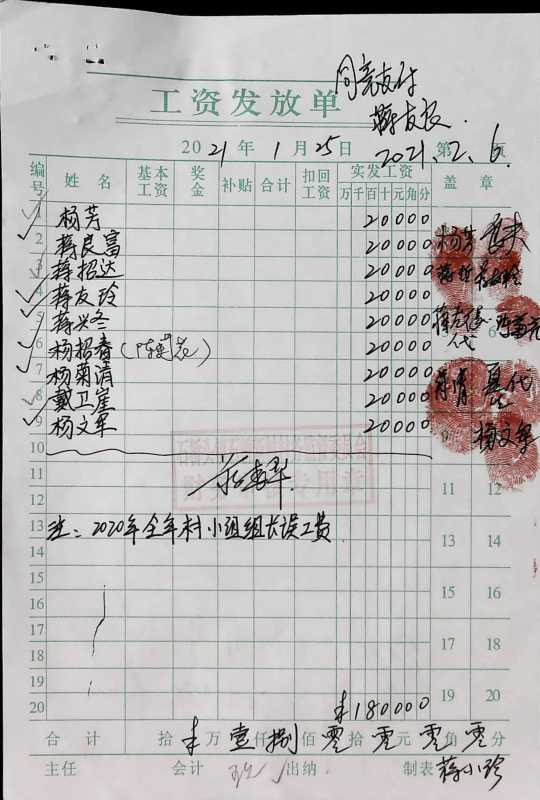 同意支付
蒋友良.
2021.2.6.
工资发放单
2021年1月25日 第 页
编号 姓名 基本工资 奖金 补贴 合计 扣回工资 实发工资 盖章
万千百十元角分
1 杨芳 20000
2 蒋良富 20000 杨芳
3 蒋招达 20000
4 蒋友玲 20000
5 蒋兴冬 20000
6 杨招春(陈菊花) 20000 代
7 杨菊清 20000
8 戴卫崖 20000 代
9 杨文军 20000 杨文军
10
11 11 12
12
13 注:2020年全年村小组组长误工费 13 14
14
15 15 16
16
17 17 18
18
19 19 20
20 ¥180000
合计 拾 ¥ 万 壹 仟 捌 佰 零 拾 零 元 零 角 零 分
主任 会计 出纳 制表 蒋小珍